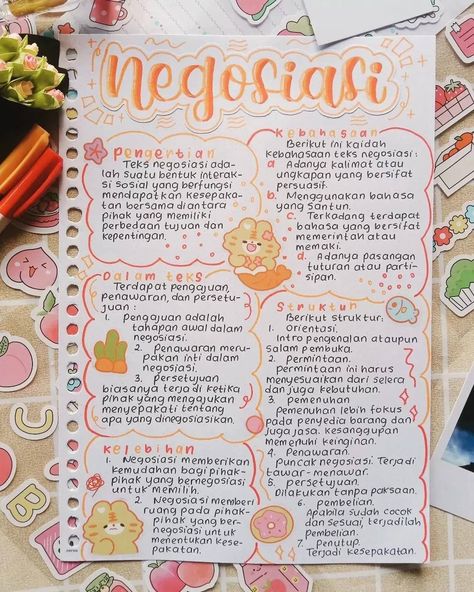 negosiasi
Pengertian
Teks negosiasi ada-
lah suatu bentuk interak-
si sosial yang berfungsi
mendapatkan kesepaka-
tan bersama diantara
pihak yang memiliki
perbedaan tujuan dan
kepentingan.
Dalam teks
Terdapat pengajuan,
penawaran, dan persetu-
juan :
1. Pengajuan adalah
tahapan awal dalam
negosiasi.
2. Penawaran meru-
pakan inti dalam
negosiasi.
3. Persetyujuan
biasanya terjadi ketika
pihak yang mengajukan
menyepakati tentang
apa yang dinegosiasikan.
Kelebihan
1. Negosiasi memberikan
kemudahan bagi pihak-
pihak yang bernegosiasi
untuk memilih.
2. Negosiasi memberi
ruang pada pihak-
pihak yang ber-
negosiasi untuk
menentukan kese-
pakatan.
Kebahasaan
Berikut ini kaidah
kebahasaan teks negosiasi :
a. Adanya kalimat atau
ungkapan yang bersifat
persuasif.
b. Menggunakan bahasa
yang santun.
c. Terkadang terdapat
bahasa yang bersifat
memerintah atau
memaki.
d. Adanya pasangan
tuturan atau parti-
sipan.
Struktur
Berikut struktur:
1. Orientasi.
Intro pengenalan ataupun
salam pembuka.
2. Permintaan.
permintaan ini harus
menyesuaikan dari selera
dan juga kebutuhan.
3. pemenuhan
pemenuhan lebih fokus
pada penyedia barang dan
juga jasa. kesanggupan
memenuhi keinginan.
4. Penawaran.
Puncak negosiasi. Terjadi
tawar-menawar.
5. persetujuan.
Dilakukan tanpa paksaan.
6. pembelian.
Apabila sudah cocok
dan sesuai, terjadilah
Pembelian.
7. Penutup.
Terjadi kesepakatan.
B